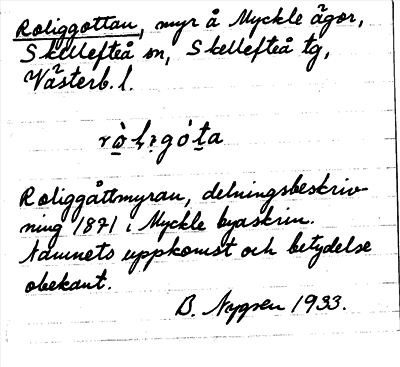 Roliggottan, myr å Myckle ägor,
Skellefteå sn, Skellefteå tg,
Västerb. l.
Roliggåttmyran, delningsbeskriv-
ning 1871 i Myckle byaskrin.
Namnets uppkomst och betydelse
obekant.
B. Nygren 1933.